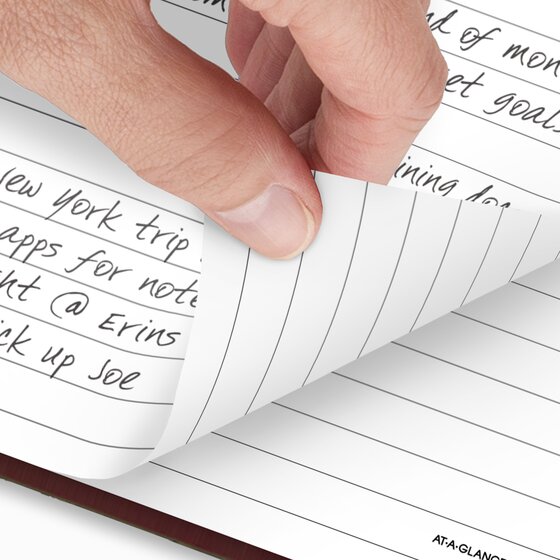 nd of mon
et goals
ining doc
New York trip
apps for note
ht @ Erins
ick up Joe
AT-A-GLANCE